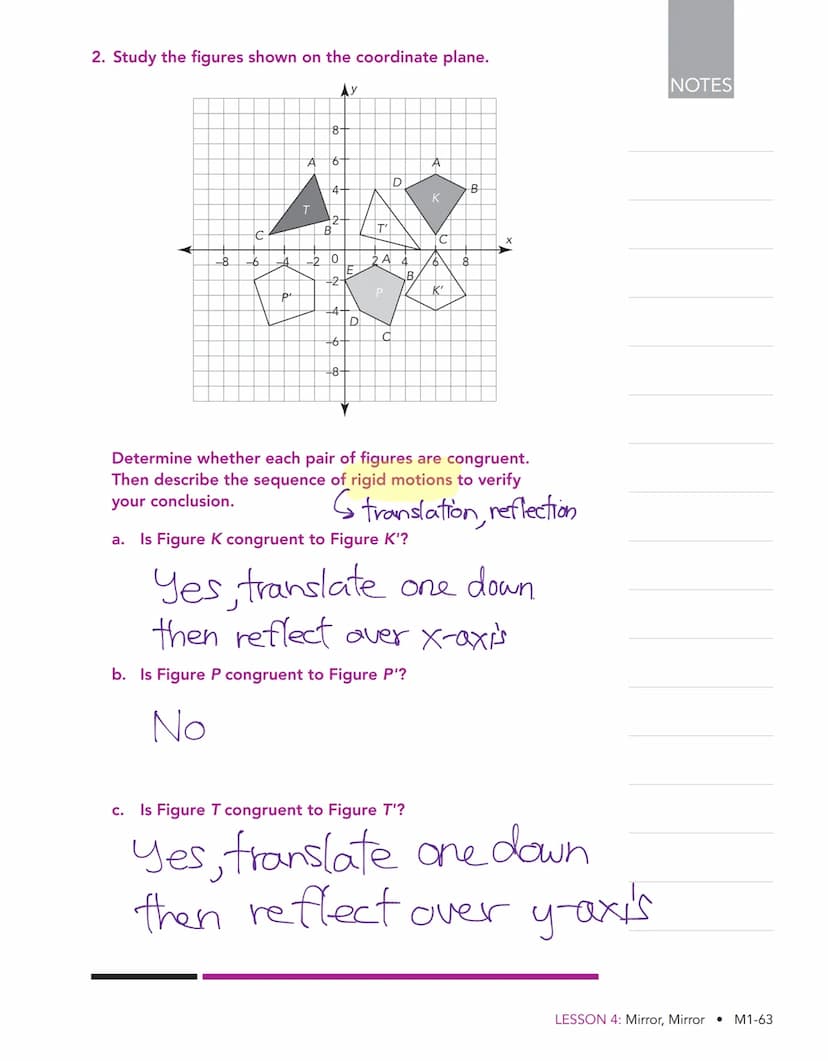 NOTES
2. Study the figures shown on the coordinate plane.
y
8
A 6 A
D
4 B
K
T
2
B T'
C C
x
–8 –6 –4 –2 0 2 A 4 6 8
E
–2 B
P' P K'
–4
D
–6 C
–8
Determine whether each pair of figures are congruent.
Then describe the sequence of rigid motions to verify
your conclusion.
↳ translation, reflection
a. Is Figure K congruent to Figure K'?
Yes, translate one down
then reflect over x-axis
b. Is Figure P congruent to Figure P'?
No
c. Is Figure T congruent to Figure T'?
Yes, translate one down
then reflect over y-axis
LESSON 4: Mirror, Mirror • M1-63